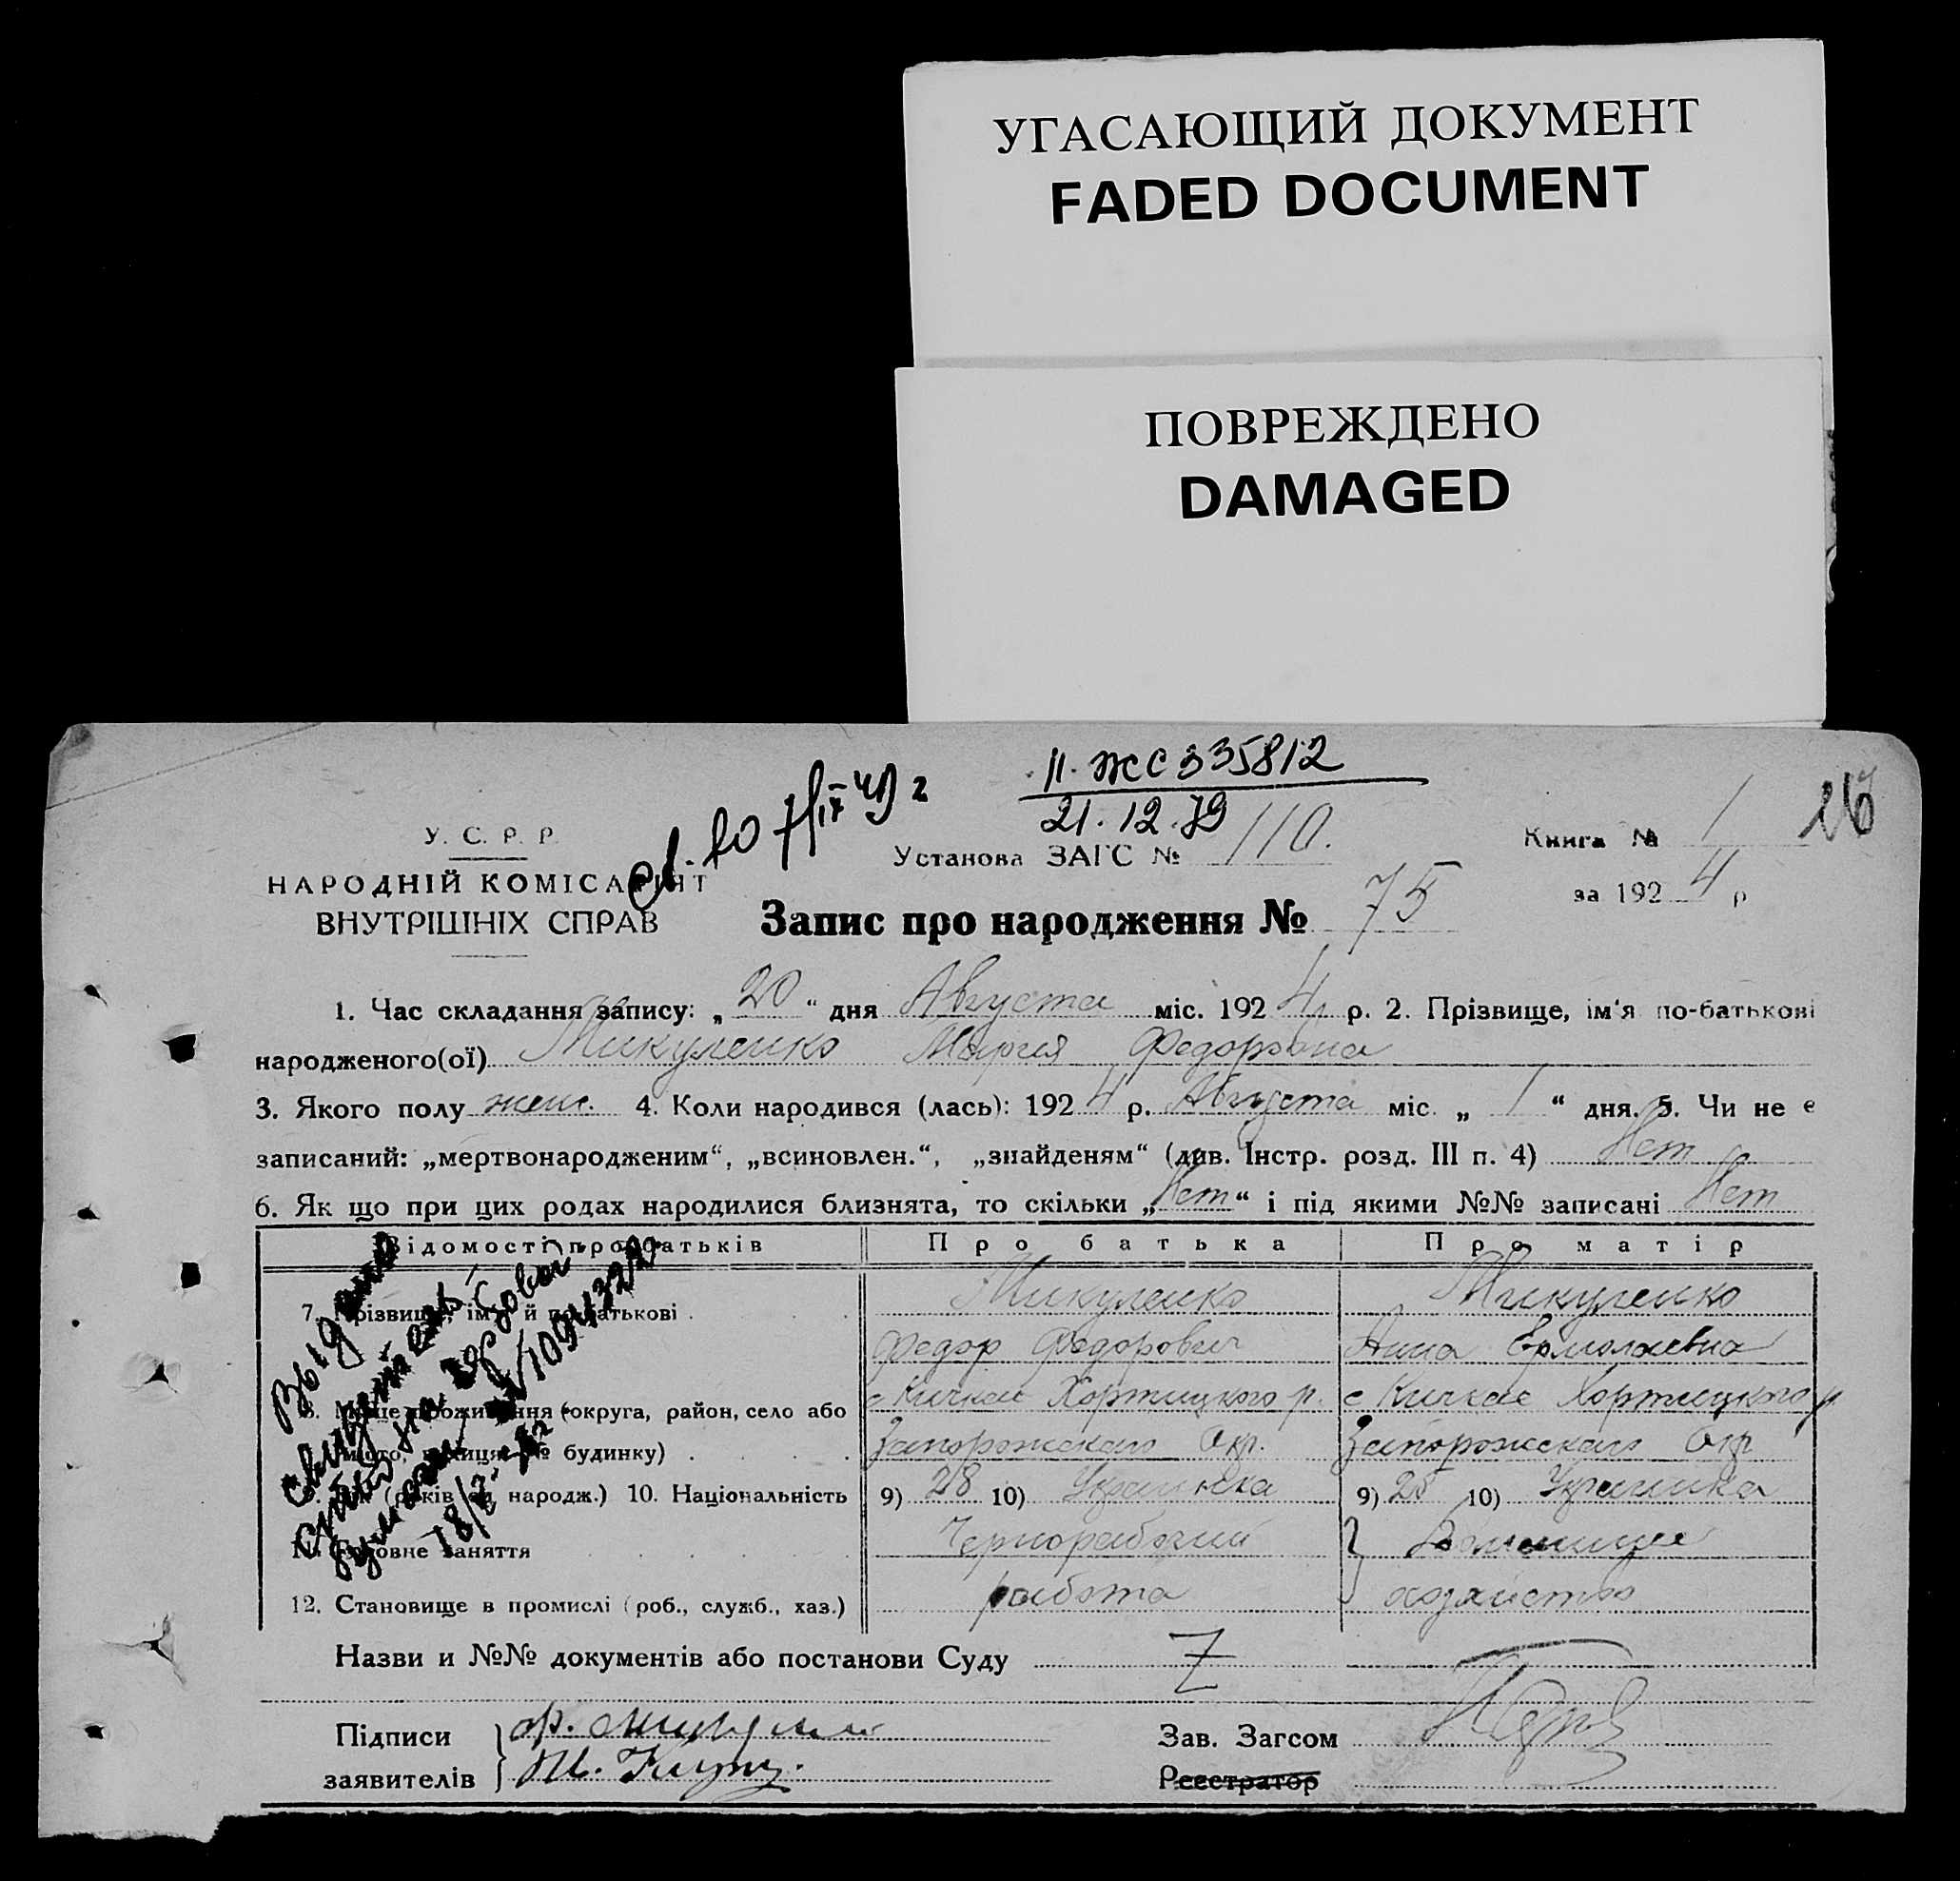 УГАСАЮЩИЙ ДОКУМЕНТ
FADED DOCUMENT
ПОВРЕЖДЕНО
DAMAGED
II. ЖС 335812
21.12.79
26
У. С. Р. Р.
НАРОДНІЙ КОМІСАРІЯТ
ВНУТРІШНІХ СПРАВ
Установа ЗАГС № 110.
Книга № 1
за 1924 р
Запис про народження № 75
1. Час складання запису: „20“ дня Августа міс. 1924 р. 2. Прізвище, ім'я по-батькові
народженого(ої) Микуленко Мария Федоровна
3. Якого полу жен. 4. Коли народився (лась): 1924 р. Августа міс. „1“ дня. 5. Чи не є
записаний: „мертвонародженим“, „всиновлен.“, „знайденям“ (див. Інстр. розд. III п. 4) Нет
6. Як що при цих родах народилися близнята, то скільки „Нет“ і під якими №№ записані Нет
Відомості про батьків Про батька Про матір
7. Прізвище, ім'я й по-батькові Микуленко Микуленко
Федор Федорович Анна Ермолаевна
с Кичкас Хортицкого р. с Кичкас Хортицкого р
8. Місце проживання (округа, район, село або
місто, вулиця, № будинку) Запорожского Окр. Запорожского Окр
9. Вік (років від народж.) 10. Національність 9) 28 10) 9) 25 10) Украинка
11. Головне заняття Чернорабочий Домашнее
12. Становище в промислі (роб., служб., хаз.) работа хозяйство
Назви и №№ документів або постанови Суду Z
Підписи
заявителів
Зав. Загсом
Реєстратор